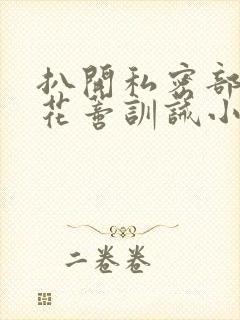 扒開私密部
花蒂訓誡小
二卷卷